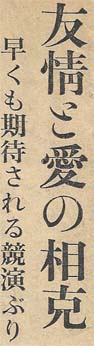 友情と愛の相克
早くも期待される競演ぶり